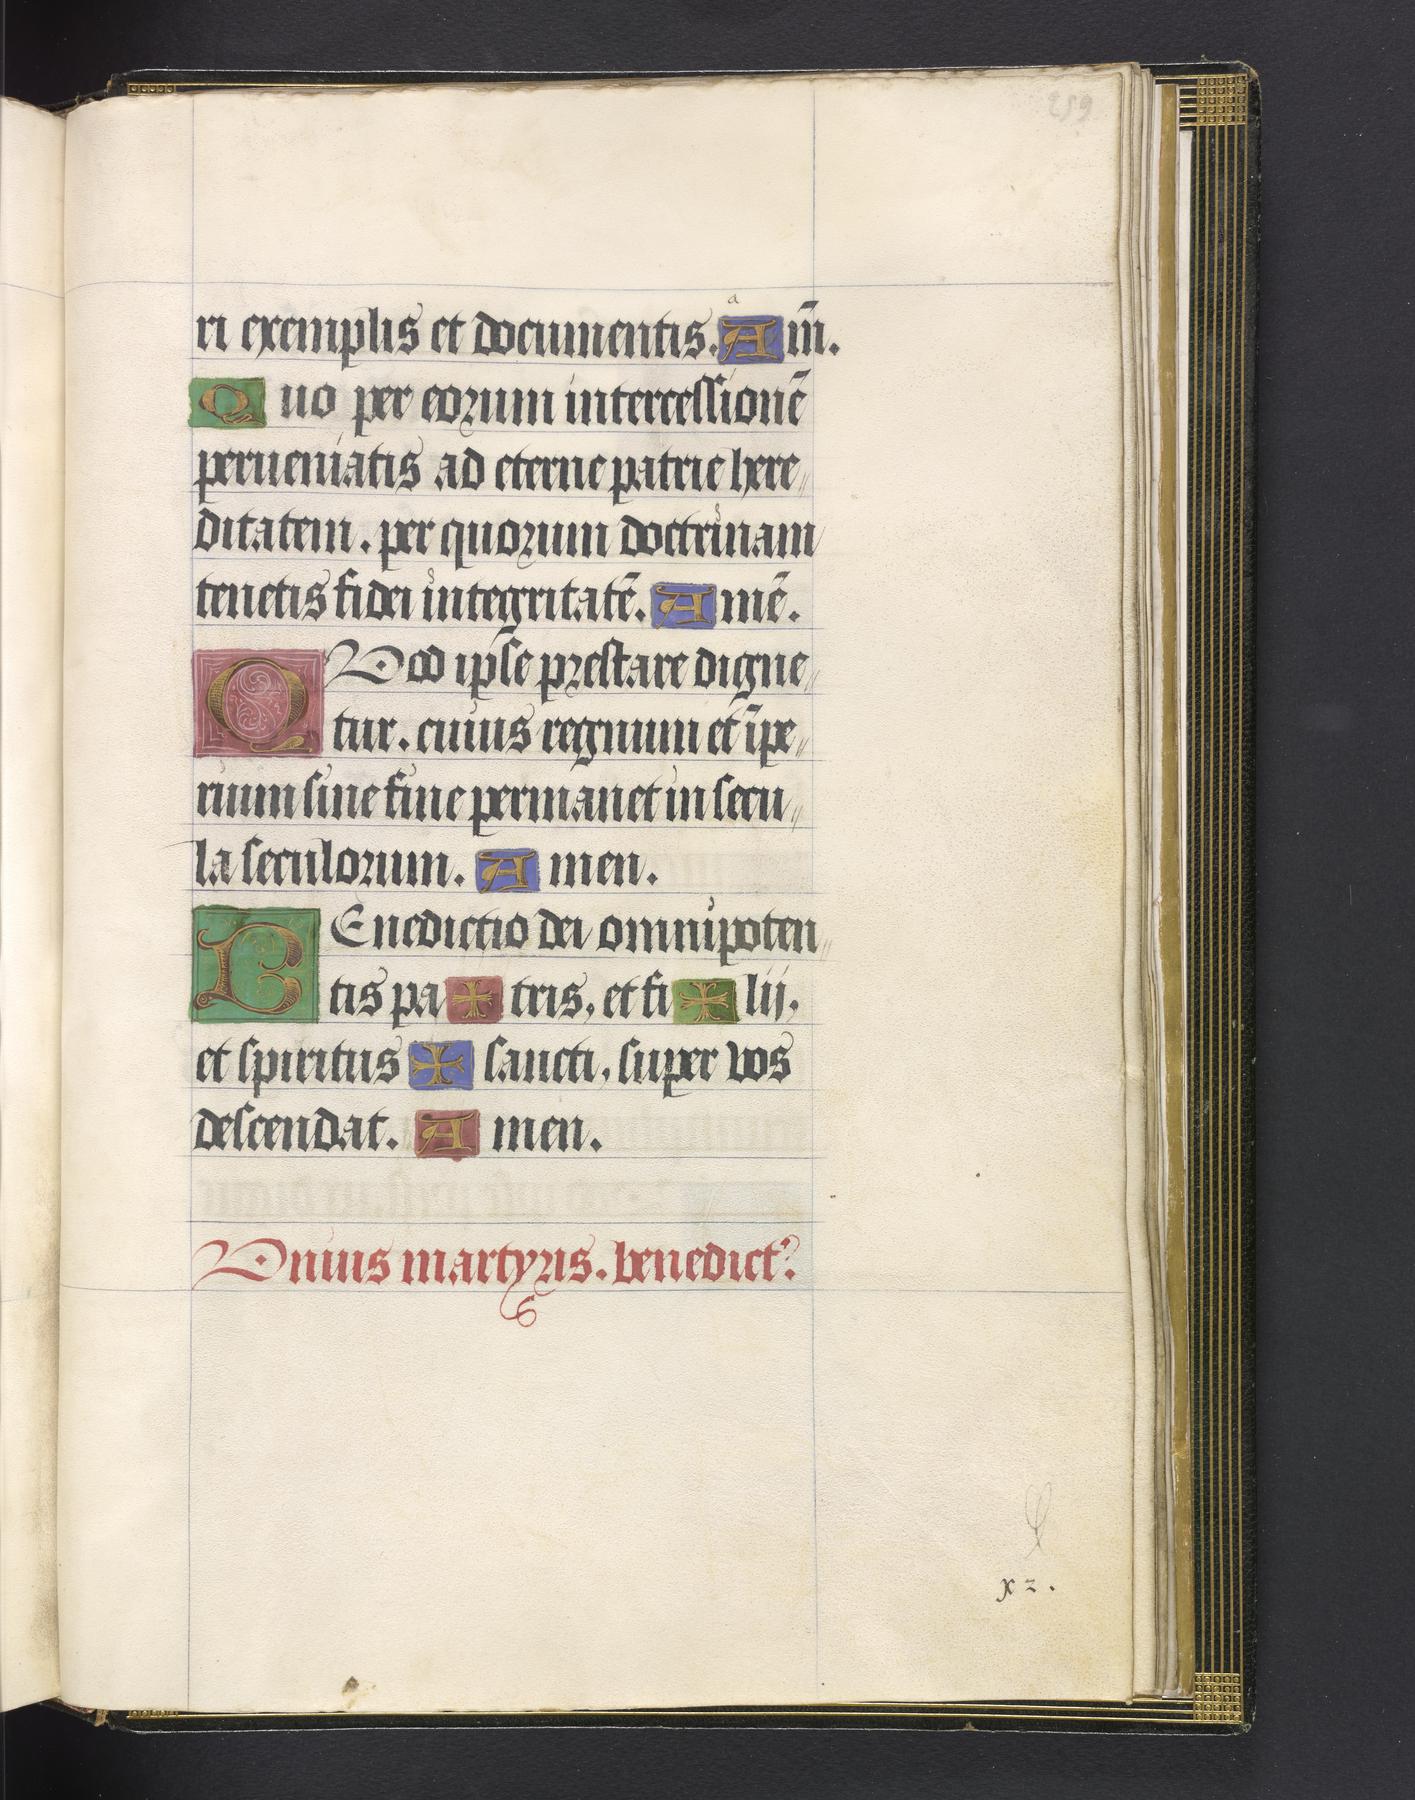 259
ri exemplis et documentis. Am̄.
Quo per eorum intercessionē
perueniatis ad eterne patrie here〃
ditatem. per quorum doctrinam
tenetis fidei integritatē. Amē.
QVod ipse prestare digne〃
tur. cuius regnum et īpe〃
rium sine fine permanet in secu〃
la seculorum. Amen.
BEnedictio dei omnipoten〃
tis pa✠tris, et fi✠lii,
et spiritus ✠ sancti, super vos
descendat. Amen.
Vnius martyris. benedict'.
xz.